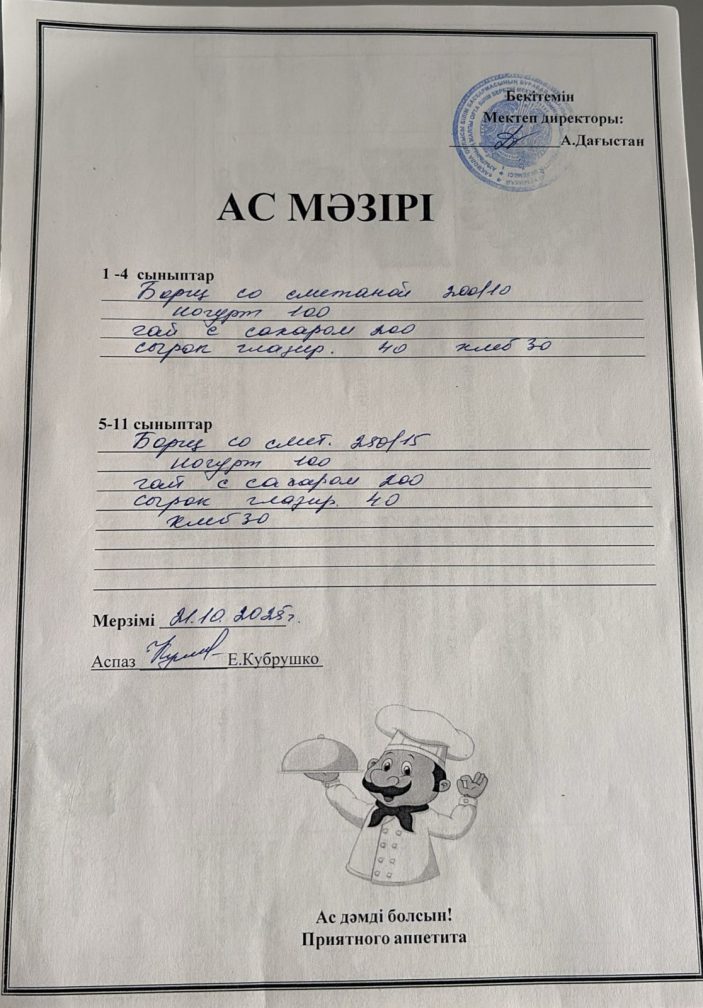 Бекітемін
Мектеп директоры:
А.Дағыстан
АС МӘЗІРІ
1 -4 сыныптар
Борщ со сметаной 200/10
йогурт 100
чай с сахаром 200
сырок глазир. 40 хлеб 30
5-11 сыныптар
Борщ со смет. 250/15
йогурт 100
чай с сахаром 200
сырок глазир. 40
хлеб 30
Мерзімі 21.10.2025г.
Аспаз Е.Кубрушко
Ас дәмді болсын!
Приятного аппетита